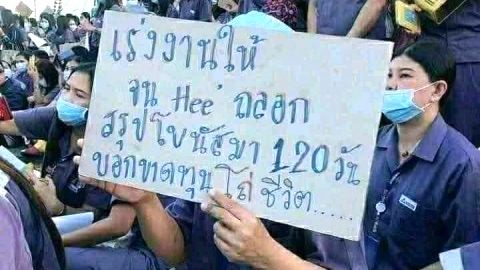 เร่งงานให้
จน Hee' ถลอก
สรุปโบนัสมา 120 วัน
บอกขาดทุนโถ่ชีวิต......